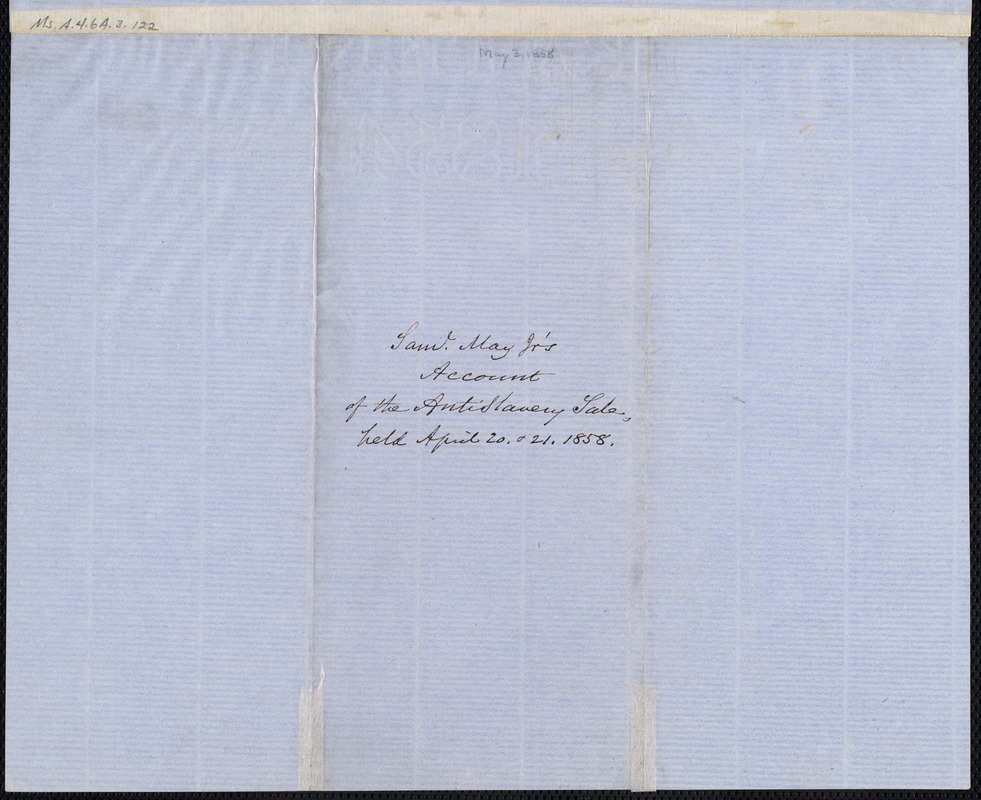 Ms. A.4.6A.3.122
May 3, 1858
Saml. May Jr's
Account
of the AntiSlavery Sale,
held April 20. & 21. 1858.